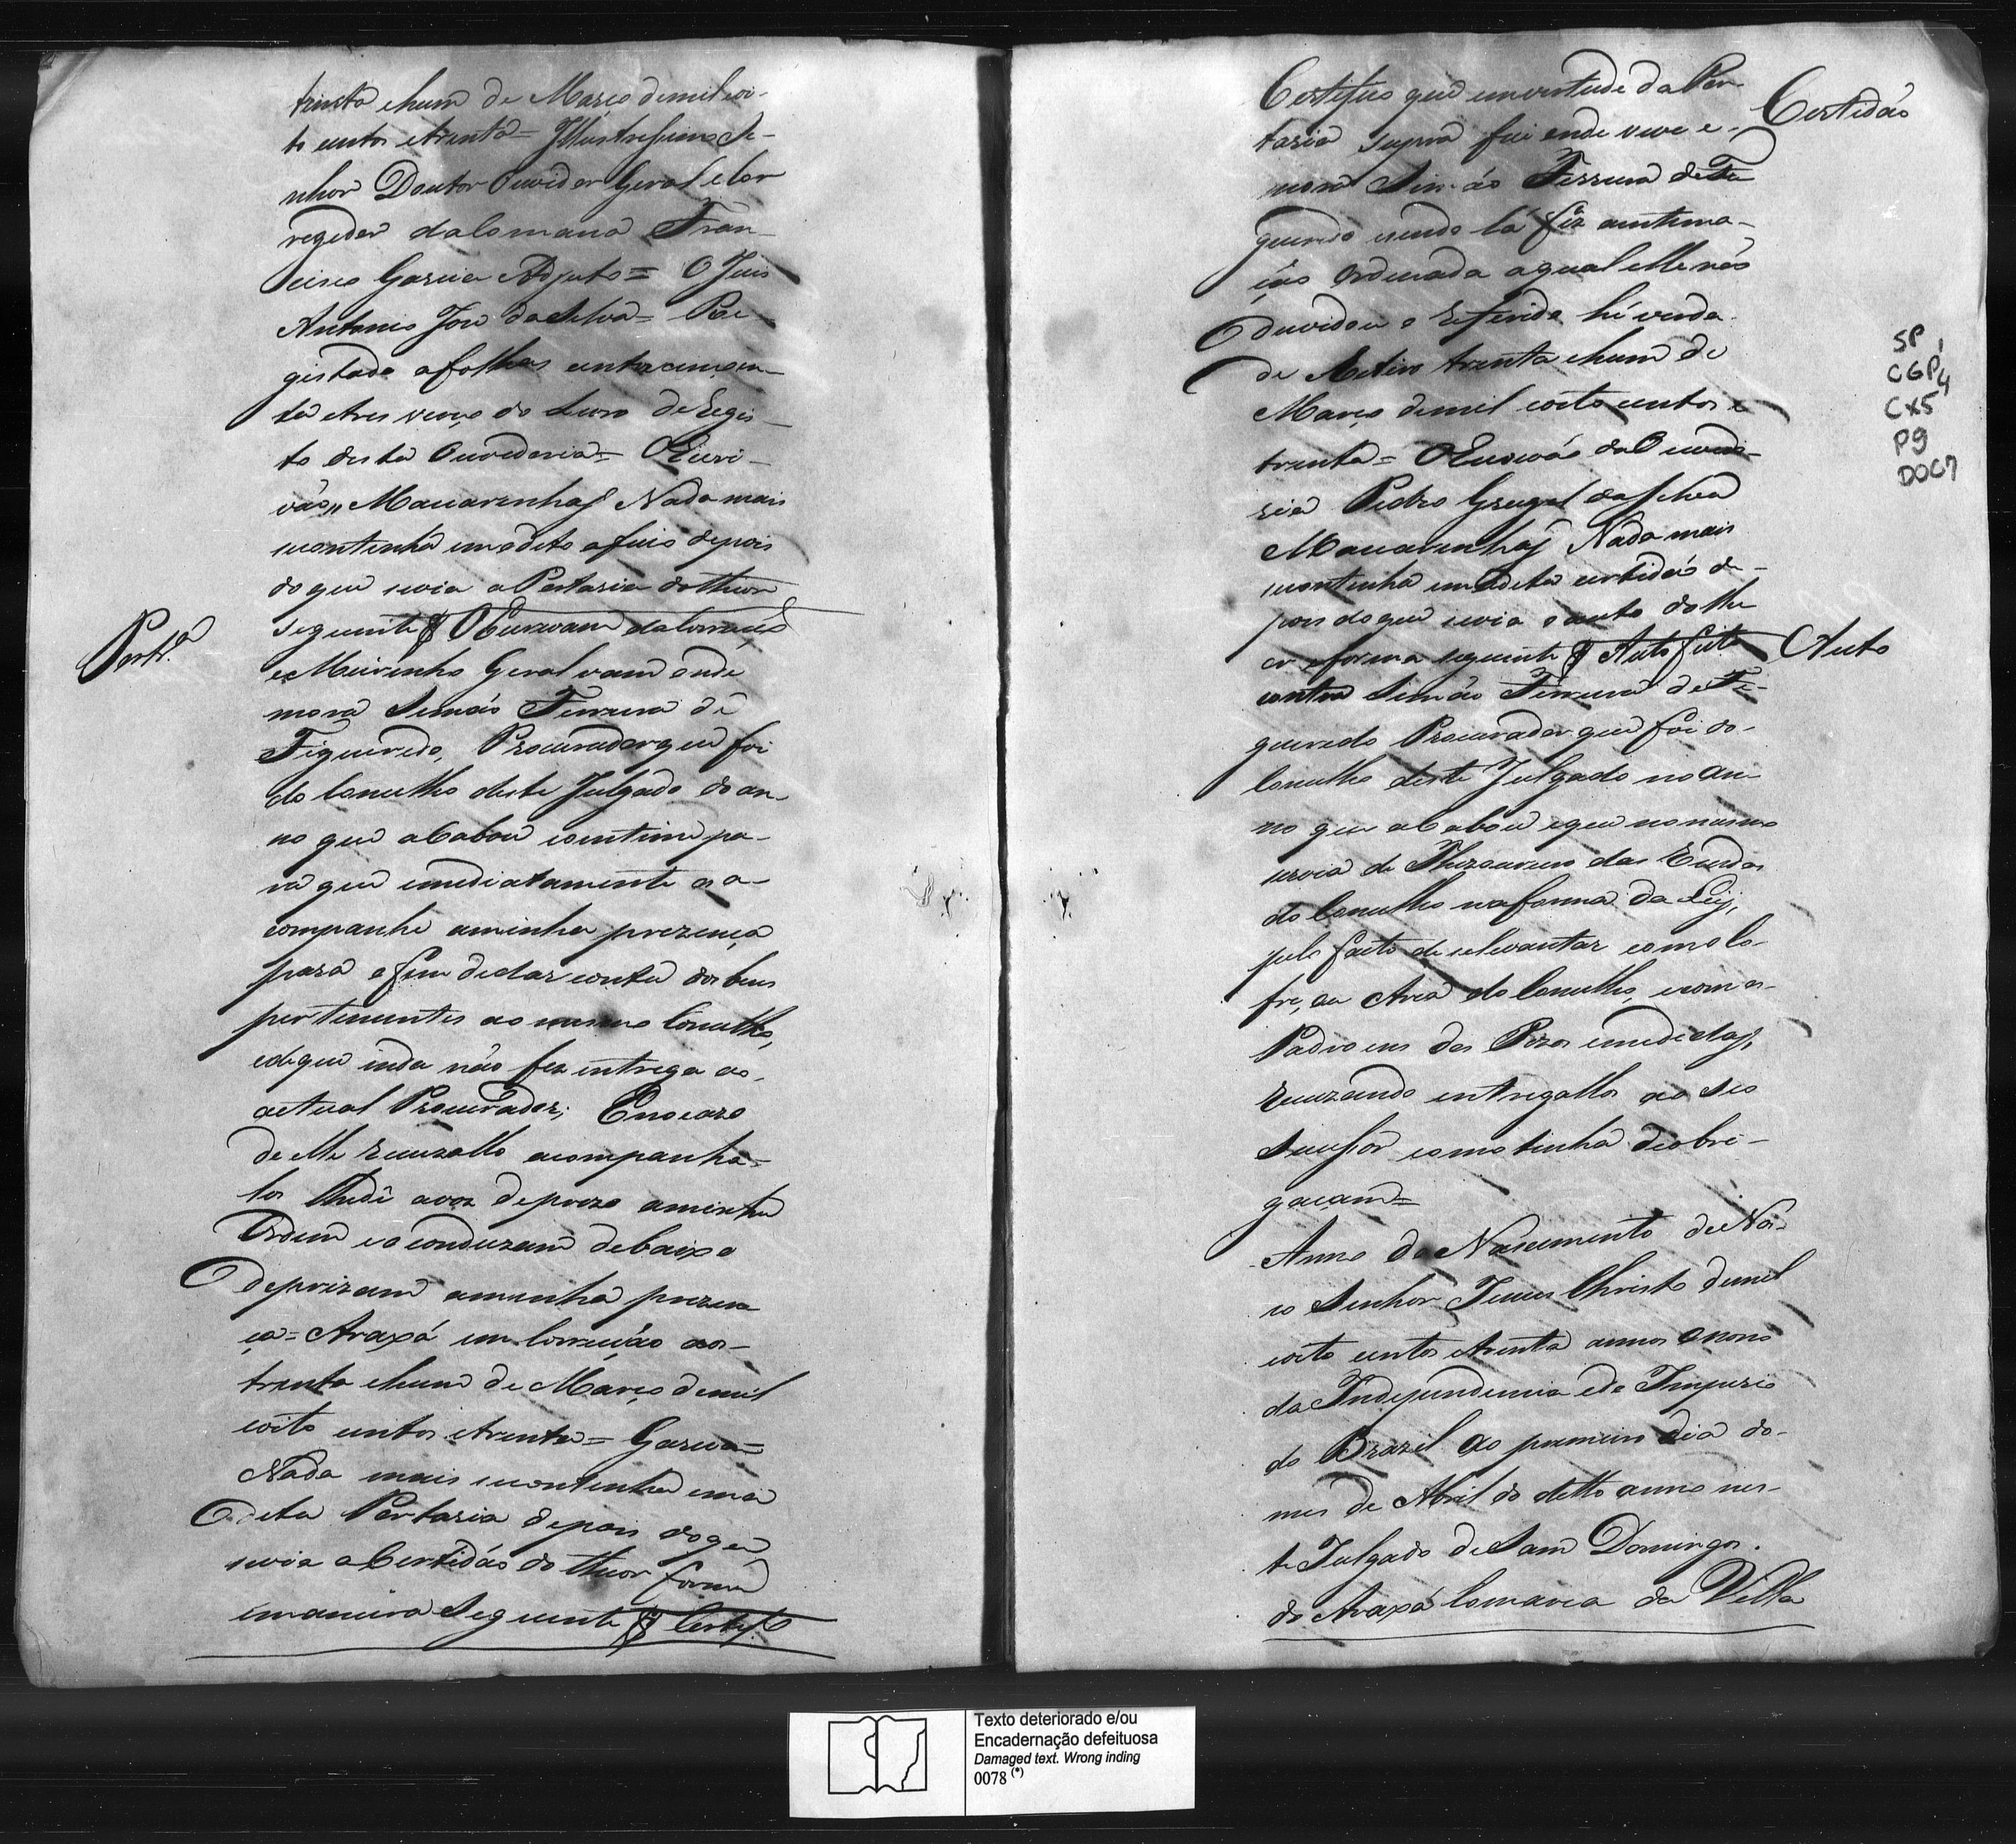 trinta ehum de Março demiloi-
to centos etrinta= Illustrissimo Se-
nhor Doutor Ouvidor Geral eCor
regedor daComarca Fran-
cisco Garcia Adjuto= O Juis
Antonio Joze daSilva= Re
gistado afolhas cento ecincoen-
ta etres verço do Livro deRegis-
to desta Ouvedoria= OEscri-
vão,, Macarenhas Nada mais
secontinha emodito oficio depois
doque sevia aPortaria dotheor
seguinte § OEscrivam daCorreiçaõ
eMeirinho Geral vam onde
mora Simaõ Ferreira de
Figueiredo, Procurador que foi
do Concelho deste Julgado do an-
no que acabou eointime pa-
ra que imediatamente os a-
companhe aminha prezença
para ofim dedar conta dos bens
pertencentes ao mesmo Concelho,
edeque inda não fez entrega ao
actual Procurador; Enocazo
de elle recuzallo acompanha-
los lhedê avoz deprezo aminha
Ordem eoconduzam debaixo
deprizam aminha prezen
ça= Araxá em Correição aos
trinta ehum de Março demil
oito centos etrinta= Garcia=
Nada mais secontinha em a
dita Portaria depois doque
sevia aCertidaõ do theor forma
emaneira Seguinte § Certifico
Port.ª
Certifico que emvertude daPor
taria supra fui onde vive e
mora Simão Ferreira deFi
gueiredo esendo lá fiz aintima-
ção Ordenada aqual elle não
duvidou o referido hé verda
de Retiro trinta ehum de
Março demil oito centos e
trinta= OEscrivão daOuvedo-
ria Pedro Gurgel daSilva
Macarenhas Nada mais
secontinha emadita certidaõ de-
pois doque sevia oauto dothe
or eforma seguinte § Auto feito
contra Simão Ferreira deFi-
gueiredo Procurador que foi do
Concelho deste Julgado no an
no que acabou eque nomesmo
servia de Thezoureiro das Rendas
do Concelho naforma da Ley,
pelo facto deselevantar comoCo-
fre, ou Arca do Concelho, ecom os
Padroens dos Pezos emedidas,
recuzando entregallos ao seo
Sucessor como tinha deobri-
gaçam=
Anno do Nascimento deNos-
so Senhor Jezus Christo demil
oito centos etrinta annos Onono
da Independencia edo Imperio
do Brazil ao primeiro dia do
mes de Abril do ditto anno nes-
te Julgado de Sam Domingos
do Araxá Comarca da Villa
Certidaõ
Auto
SP
CGP4
CX5
P9
DOC7
Texto deteriorado e/ou
Encadernação defeituosa
Damaged text. Wrong inding
0078 (*)